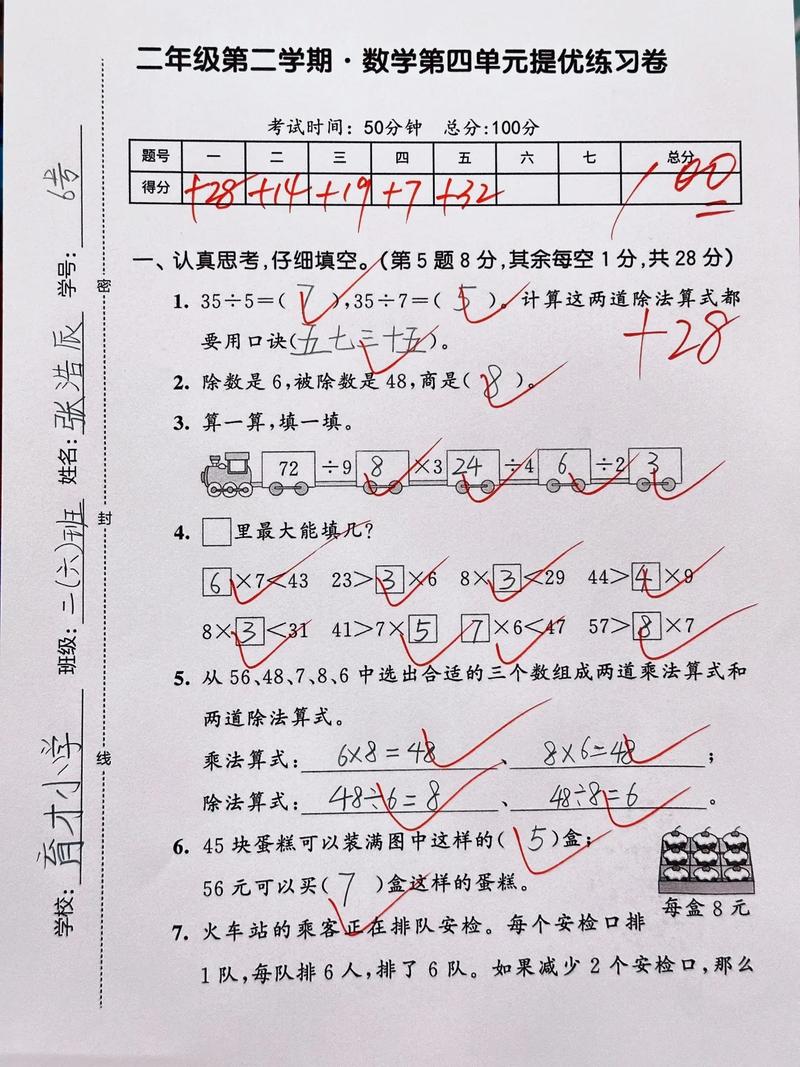 二年级第二学期·数学第四单元提优练习卷
考试时间：50分钟 总分：100分
题号 一 二 三 四 五 六 七 总分
得分 +28 +14 +19 +7 +32 100
一、认真思考，仔细填空。（第5题8分，其余每空1分，共28分）
+28
1. 35÷5=( 7 )，35÷7=( 5 )。计算这两道除法算式都
要用口诀(五七三十五)。
2. 除数是6，被除数是48，商是( 8 )。
3. 算一算，填一填。
72 ÷9 8 ×3 24 ÷4 6 ÷2 3
4. □里最大能填几？
6×7<43 23>3×6 8×3<29 44>4×9
8×3<31 41>7×5 7×6<47 57>8×7
5. 从56、48、7、8、6中选出合适的三个数组成两道乘法算式和
两道除法算式。
乘法算式：6×8=48、8×6=48；
除法算式：48÷6=8、48÷8=6。
6. 45块蛋糕可以装满图中这样的( 5 )盒；
56元可以买( 7 )盒这样的蛋糕。
每盒8元
7. 火车站的乘客正在排队安检。每个安检口排
1队，每队排6人，排了6队。如果减少2个安检口，那么
学校：育才小学 班级：二(六)班 姓名：张浩辰 学号：6号
密 封 线